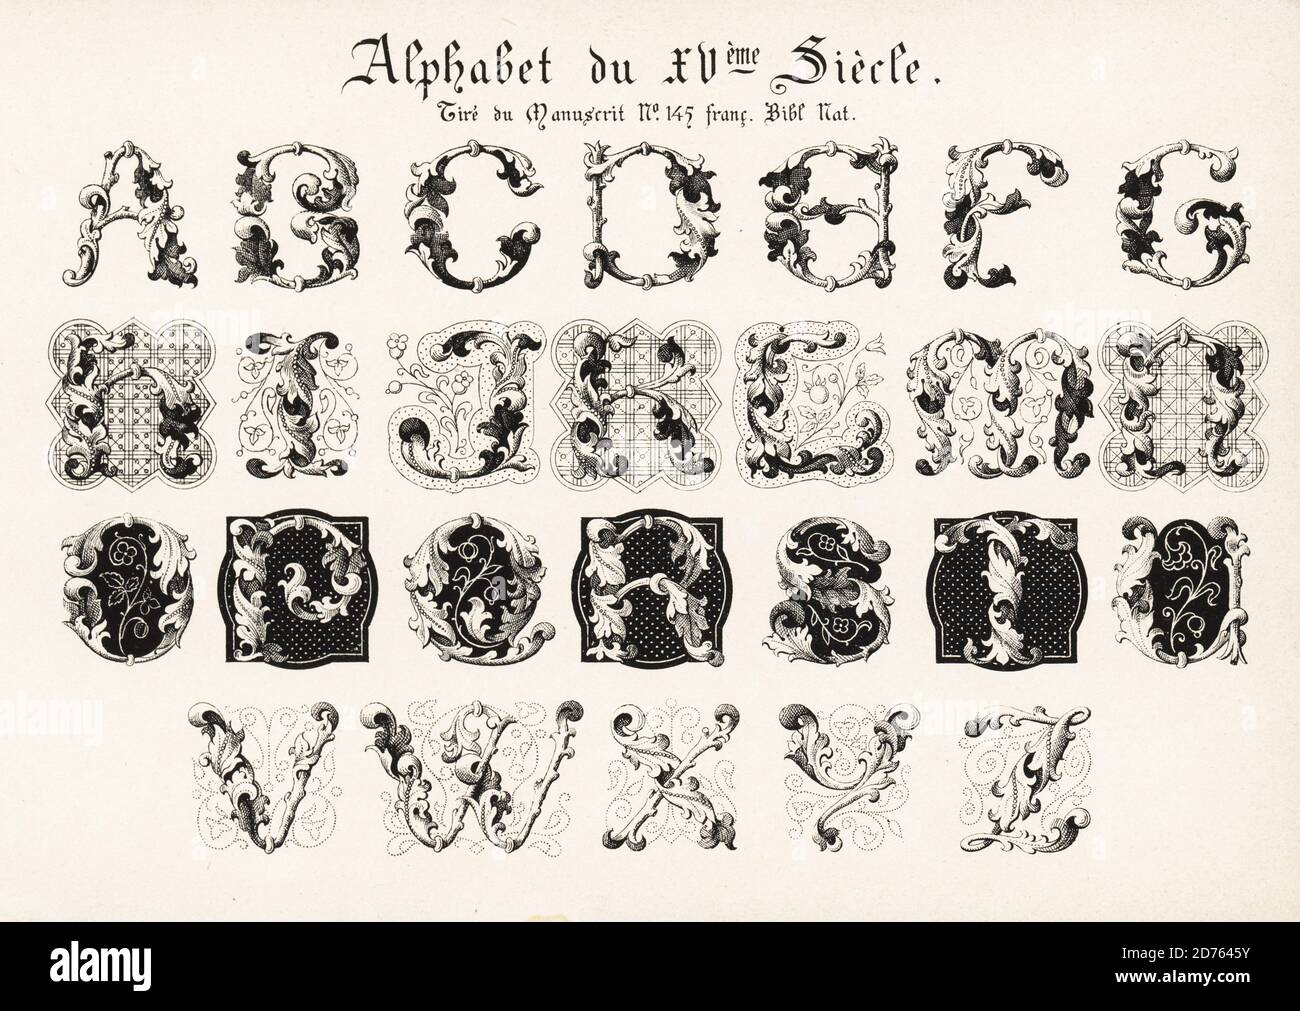 Alphabet du XVème Siècle.
Tiré du Manuscrit No. 145 franç. Bibl Nat.
A B C D E F G
H I J K L M N
O P Q R S T U
V W X Y Z
alamy
Image ID: 2D7645Y
www.alamy.com